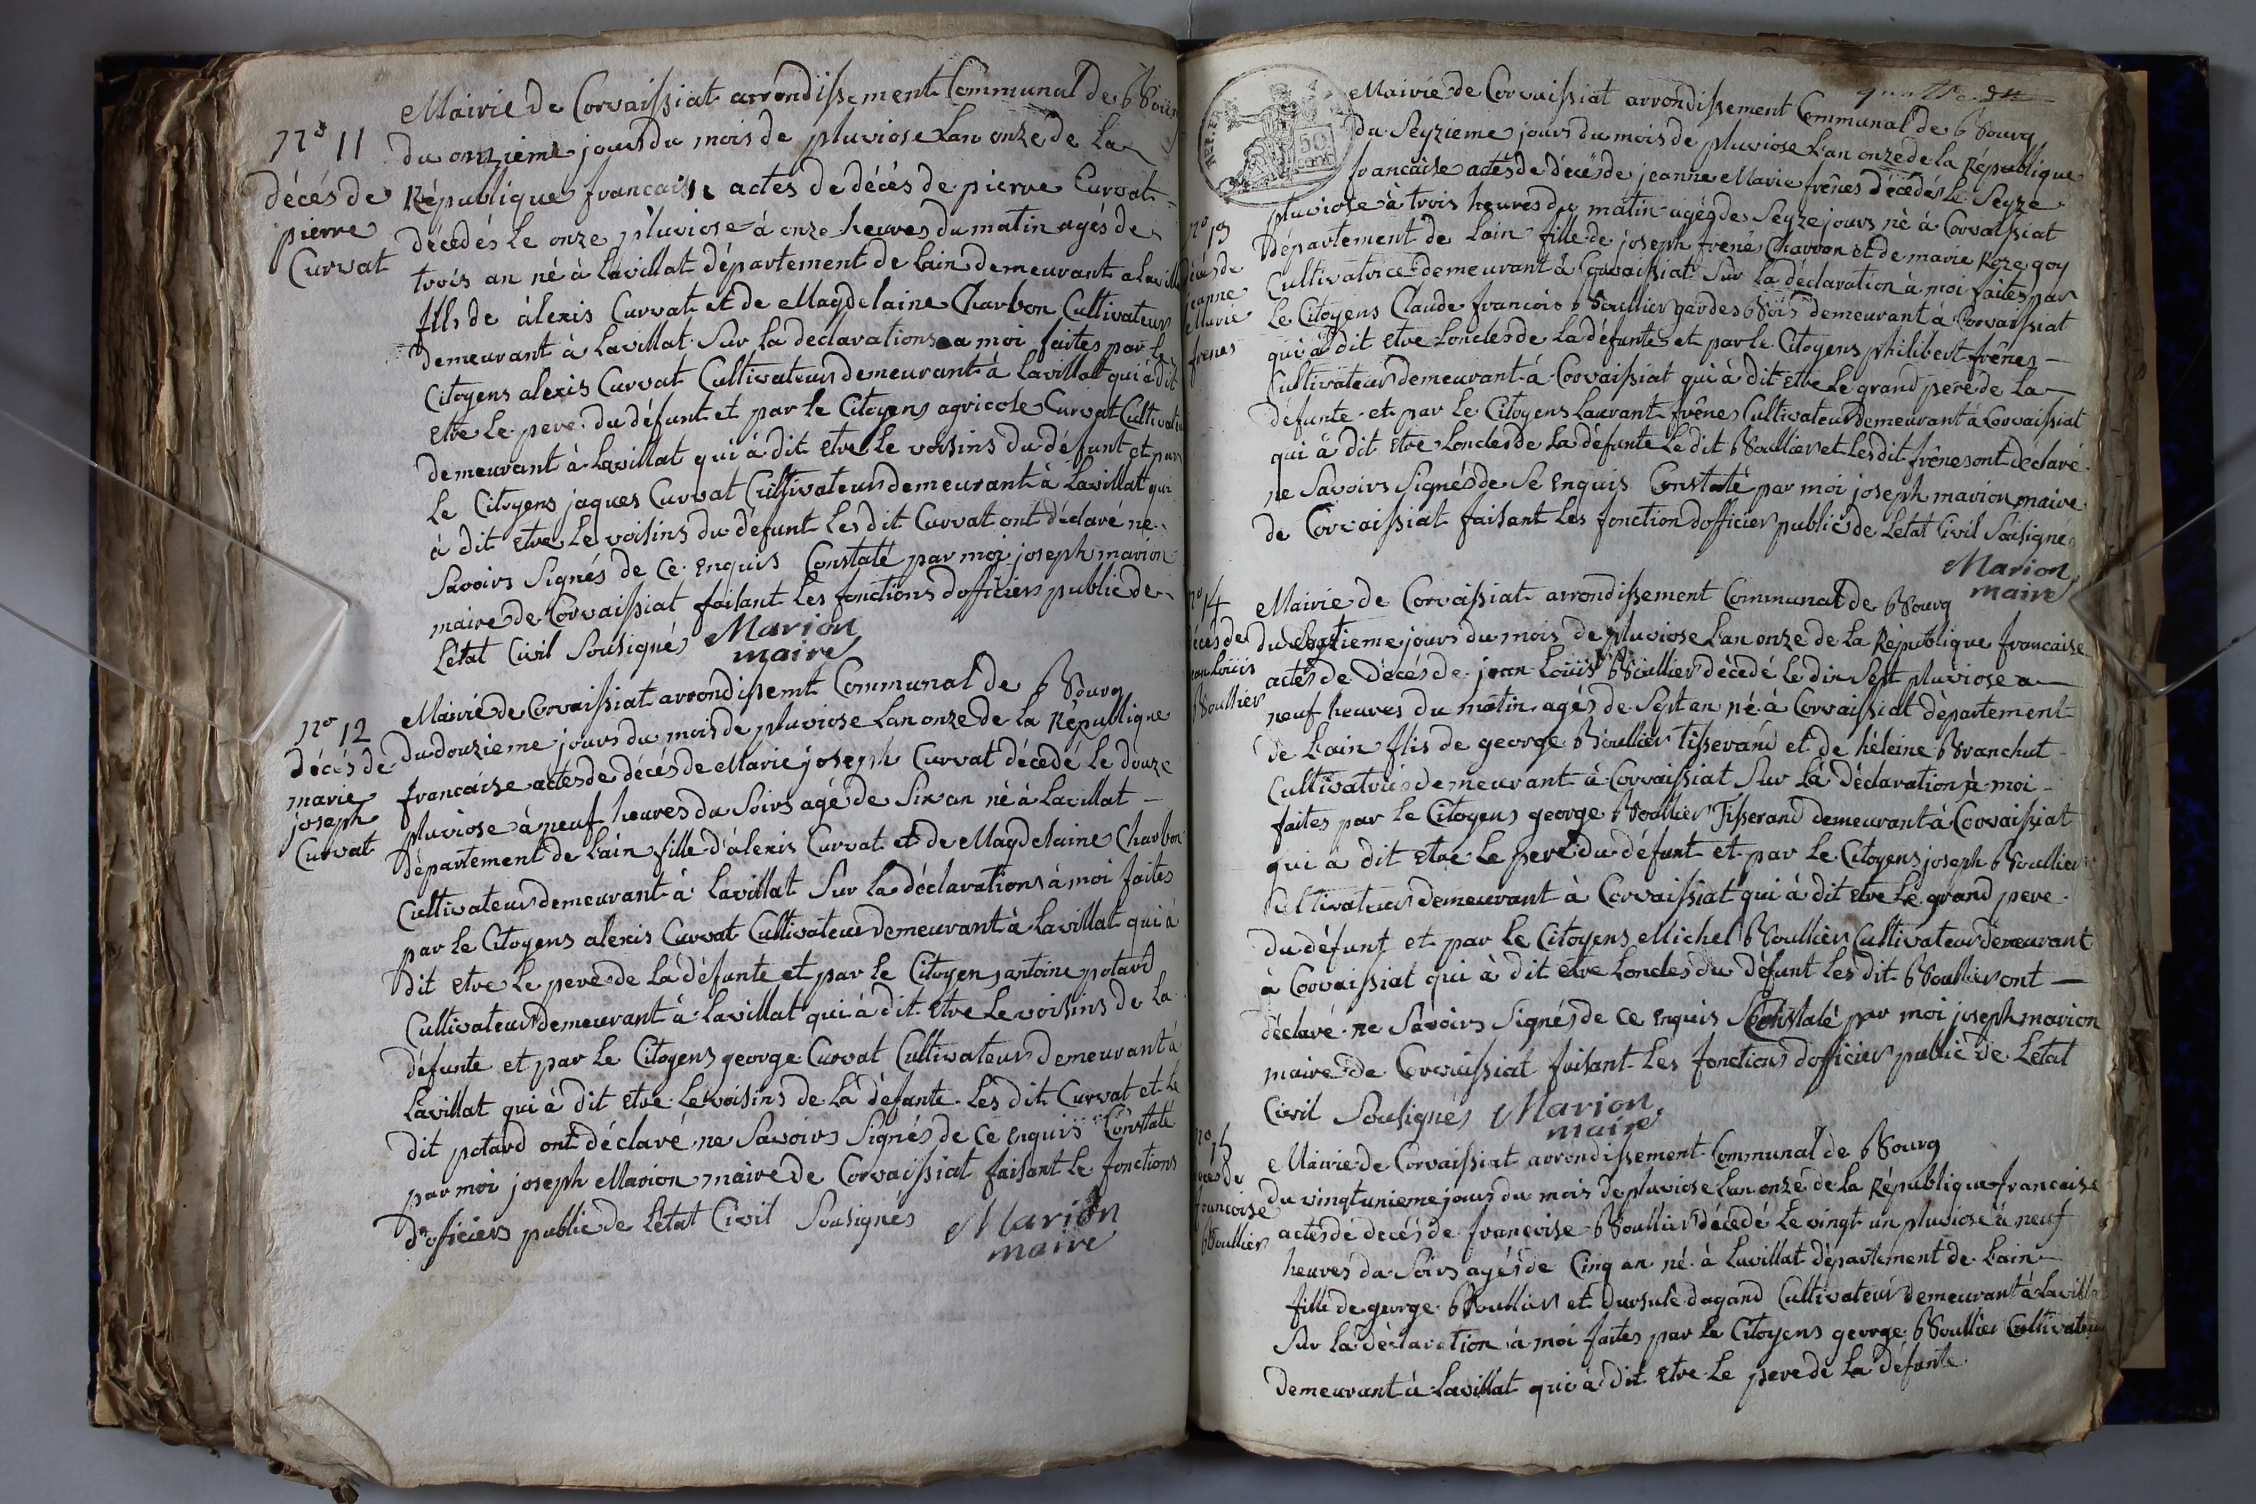 Mairie de Corvaissiat arrondissement Communal de bBourg
N° 11
du onzieme jours du mois de pluviose Lan onze de La
décés de
pierre
Curvat
République francaise actes de décés de pierre Curvat
décédés le onze pluviose à onze heures du matin agés de
trois an né à Lavillat département de Lain demeurant a Lavillat
fils de àlexis Curvat et de Magdelaine Charbon Cultivateurs
demeurant à Lavillat Sur La declarations a moi faites par le
Citoyens alexis Curvat Cultivateurs demeurant à Lavillat qui à dit
etre Le pere du défunt et par le Citoyens agricole Curvat Cultivateur
demeurant à Lavillat qui à dit etre le voisins du défunt et par
Le Citoyens jaques Curvat Cultivateurs demeurant à Lavillat qui
à dit etre Le voisins du défunt Les dit Curvat ont déclaré ne
Savoirs Signés de Ce enquis Constaté par moi joseph marion
maire de Corvaissiat faisant Les fonctions dofficiers public de
Létat Civil Sousignés Marion
maire
N° 12
décés de
marie
joseph
Curvat
Mairie de Corvaissiat arrondissemt Communal de bBourg
du douzieme jours du mois de pluviose Lan onze de la République
francaise actes de décés de Marie joseph Curvat décédé Le douze
pluviose à neuf heures du Soirs agé de Six an né à Lavillat
département de Lain fille d'àlexis Curvat et de Magdelaine Charbon
Cultivateurs demeurant à Lavillat Sur La déclarations à moi faites
par Le Citoyens alexis Curvat Cultivateurs demeurant à Lavillat qui à
dit etre Le pere de La défunte et par le Citoyens antoine potard
Cultivateurs demeurant à Lavillat qui à dit etre Le voisins de la
défunte et par Le Citoyens george Curvat Cultivateurs demeurant à
Lavillat qui à dit etre Le voisins de La défante Les dit Curvat et le
dit potard ont déclaré ne Savoirs Signés de Ce enquis Constaté
par moi joseph Marion maire de Corvaissiat faisant le fonctions
d'officiers public de Létat Civil Sousignés Marion
maire
50
cent
Mairie de Corvaissiat arrondissement Communal de bBourg
du Seyzieme jours du mois de pluviose L'an onze de la République
francaise actes de décés de jeanne Marie frênes décédés Le Seyze
pluviose à trois heures du matin agés de Seyze jours né à Corvaissiat
N° 13
décés de
jeanne
Marie
frênes
Département de Lain fille de joseph frenes Charron et de marie Roze goy
Cultivatrice demeurant à Corvaissiat Sur La déclaration à moi faites par
Le Citoyens Claude francois bBoullier gardes bBois demeurant à Corvaissiat
qui à dit etre Londes de La défunte et par le Citoyens philibert frênes
Cultivateurs demeurant à Corvaissiat qui à dit etre Le grand pere de La
défunte et par Le Citoyens Laurant frênes Cultivateurs demeurant à Corvaissiat
qui à dit etre Loncles de La défunte Le dit bBoullier et Les dit frênes ont declaré
ne Savoirs Signés de Se enquis Constaté par moi joseph marion maire
de Corvaissiat faisant Les fonction dofficier public de Létat Civil Sousignés
Marion
maire
N° 14
décés de
jean Louis
bBoullier
Mairie de Corvaissiat arrondissement Communal de bBourg
du Septieme jours du mois de pluviose Lan onze de La République francaise
actes de décés de jean Louis bBoullier décédé Le dix Sept pluviose a
neuf heures du matin agés de Sept an né à Corvaissiat département
de Lain flis de george bBoullier Tisserand et de héleine bBranchut
Cultivatris demeurant à Corvaissiat Sur La déclaration à moi
faites par Le Citoyens george bBoullier Tisserand demeurant à Corvaissiat
qui a dit etre Le pere du défunt et par Le Citoyens joseph bBoullier
Cultivateurs demeurant à Corvaissiat qui à dit etre Le grand pere
du défunt et par Le Citoyens Michel bBoullier Cultivateurs demeurant
à Corvaissiat qui à dit etre Loncles du défunt Les dit bBoullier ont
déclaré ne Savoirs Signés de Ce enquis Constaté par moi joseph marion
maire de Corvaissiat faisant Les fonctions dofficiers public de Létat
Civil Sousignés Marion
maire
N° 15
décés de
francoise
bBoullier
Mairie de Corvaissiat arrondissement Communal de bBourg
du vingtunieme jours du mois de pluviose Lan onze de la République francaise
actes de decés de francoise bBoullier décédé Le vingt un pluviose à neuf
heures du Soirs agés de Cinq an né à Lavillat département de Lain
fille de george bBoullier et dursule dagand Cultivateurs demeurant à Lavillat
Sur La déclaration à moi faites par Le Citoyens george bBoullier Cultivateur
demeurant à Lavillat qui à dit etre Le pere de La défunte